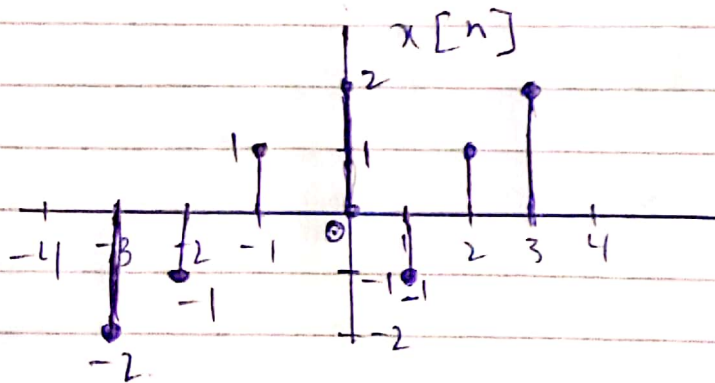 x[n]
2
1 1
-4 -3 -2 -1 0 1 2 3 4
-1 -1 -1
-2 -2